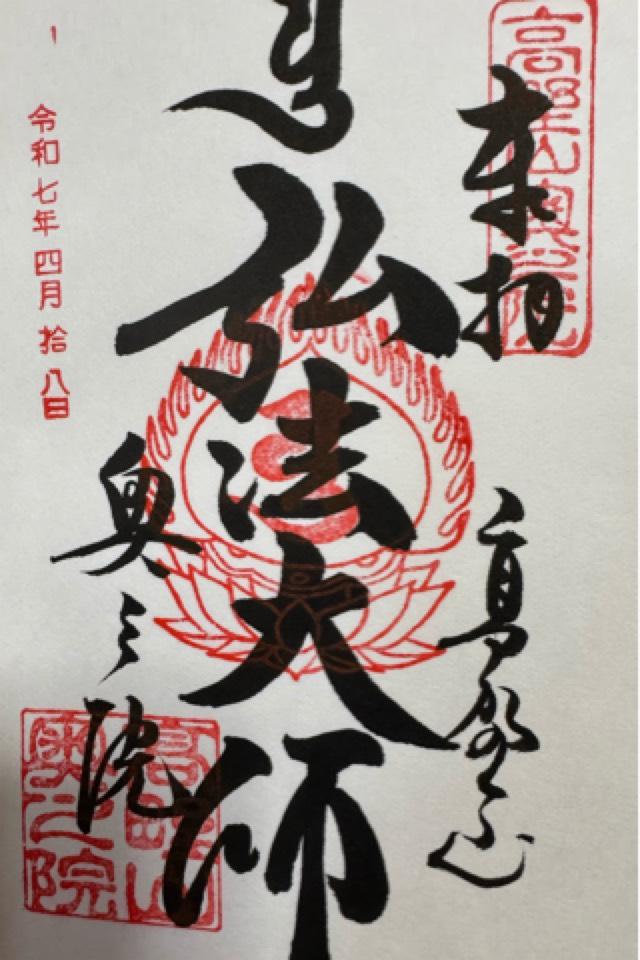 高野山奥之院
奉拝
高野山
弘法大師
奥之院
高野山奥之院
令和七年四月拾八日